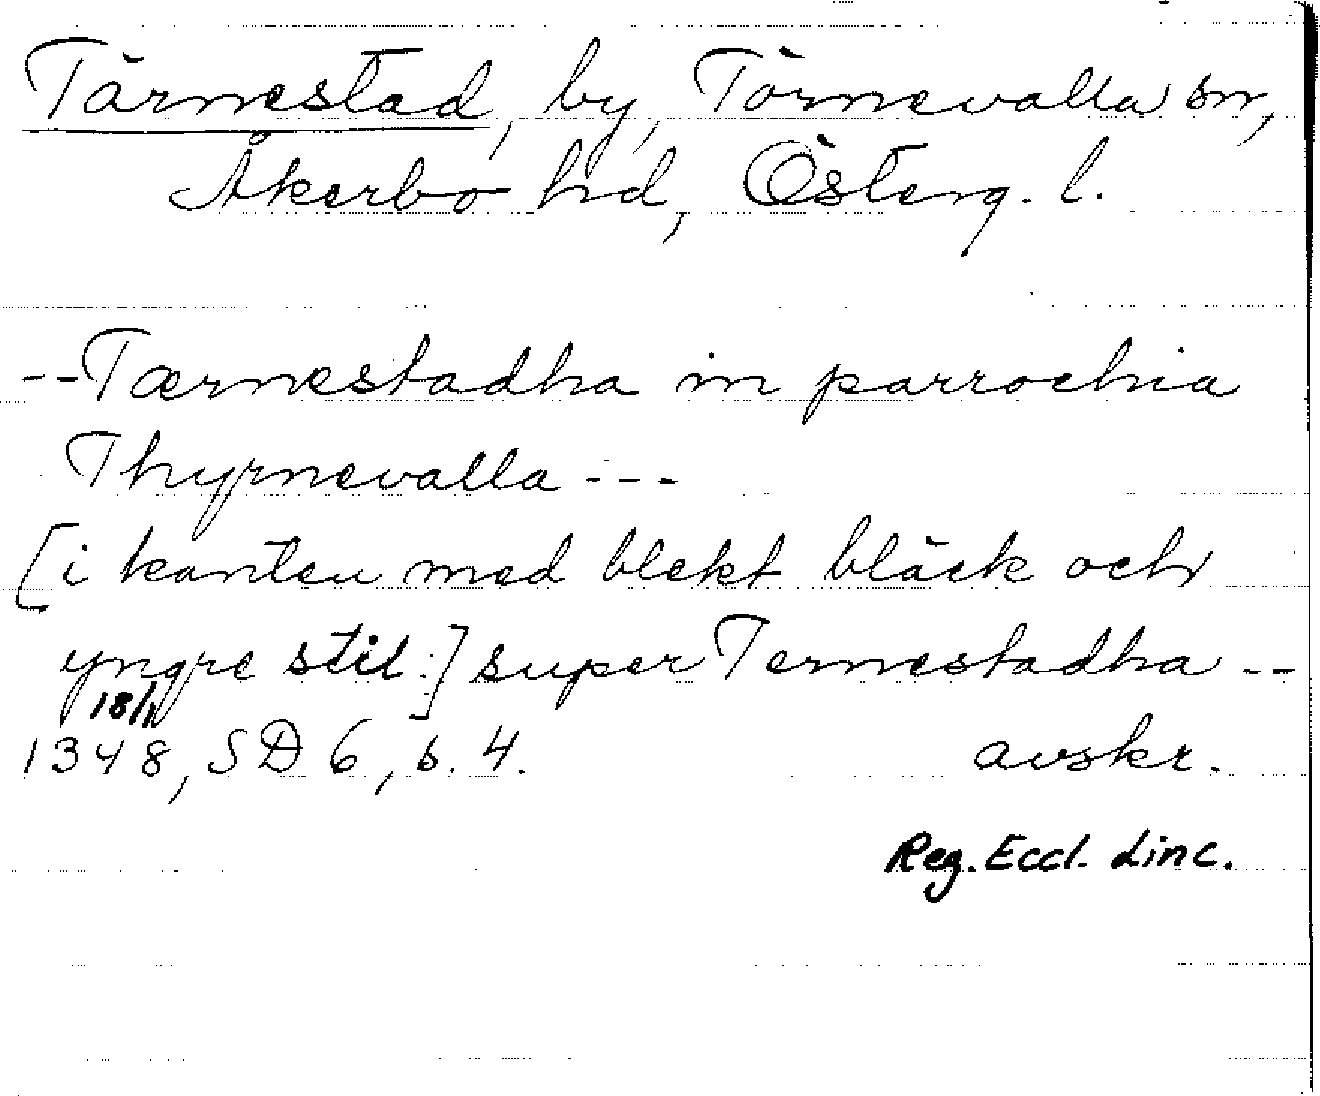 Tärnestad, by, Törnevalla sn,
Åkerbo hd, Österg. l.
--Tærnestadha in parrochia
Thyrnevalla ---
[i kanten med blekt bläck och
yngre stil:] super Ternestadha --
18/1
1348, SD 6, s. 4. avskr.
Reg. Eccl. Linc.